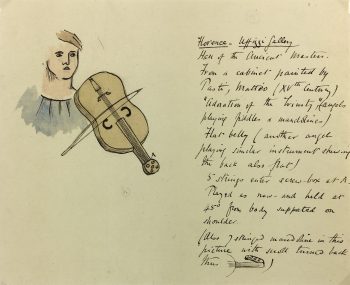 Florence - Uffizi Gallery
Hall of the Ancient Masters.
From a cabinet painted by
Matteo (XVth century)
"Adoration of the Trinity" (angels
playing fiddles & mandolines)
Flat belly (another angel
playing similar instrument shewing
the back also flat)
5 strings enter screw-box at A.
Played as now - and held at
45° from body supported on
shoulder
(Also 7 stringed mandoline in this
picture with scroll turned back
thus )
A